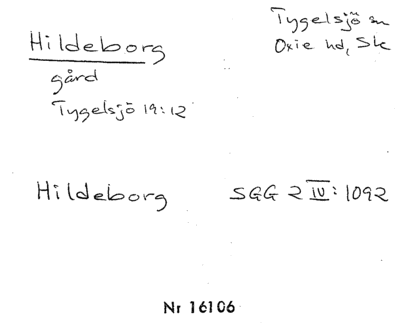 Hildeborg
gård
Tygelsjö 19:12
Tygelsjö sn
Oxie hd, Sk
Hildeborg SGG 2 IV: 1092
Nr 16106